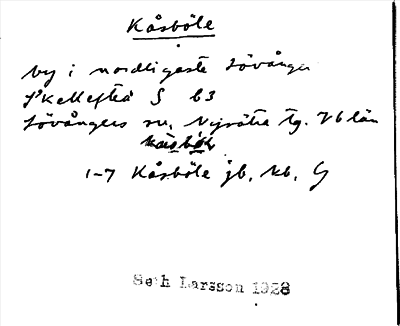 Kåsböle
by i nordligaste Lövånger
Skellefteå S 63
Lövångers sn, Nysätra tg. Vb län
1-7 Kåsböle jb, kb, G
Seth Larsson 1928